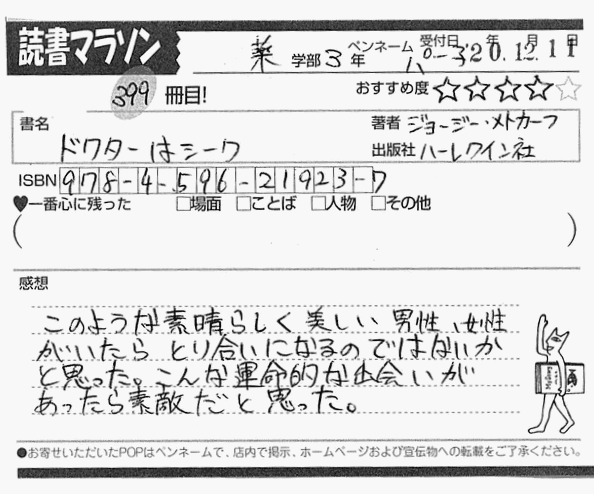 読書マラソン
薬 学部 3 年 ペンネーム パーズ 受付日 20年12月11日
399 冊目! おすすめ度 ☆☆☆☆☆
書名 ドクターはシーク
著者 ジョージー・メトカーフ
出版社 ハーレクイン社
ISBN 978-4-596-21923-7
♥一番心に残った □場面 □ことば □人物 □その他
( )
感想
このような素晴らしく美しい男性、女性
がいたら とり合いになるのではないか
と思った。こんな運命的な出会いが
あったら素敵だと思った。
●お寄せいただいたPOPはペンネームで、店内で掲示、ホームページおよび宣伝物への転載をご了承ください。